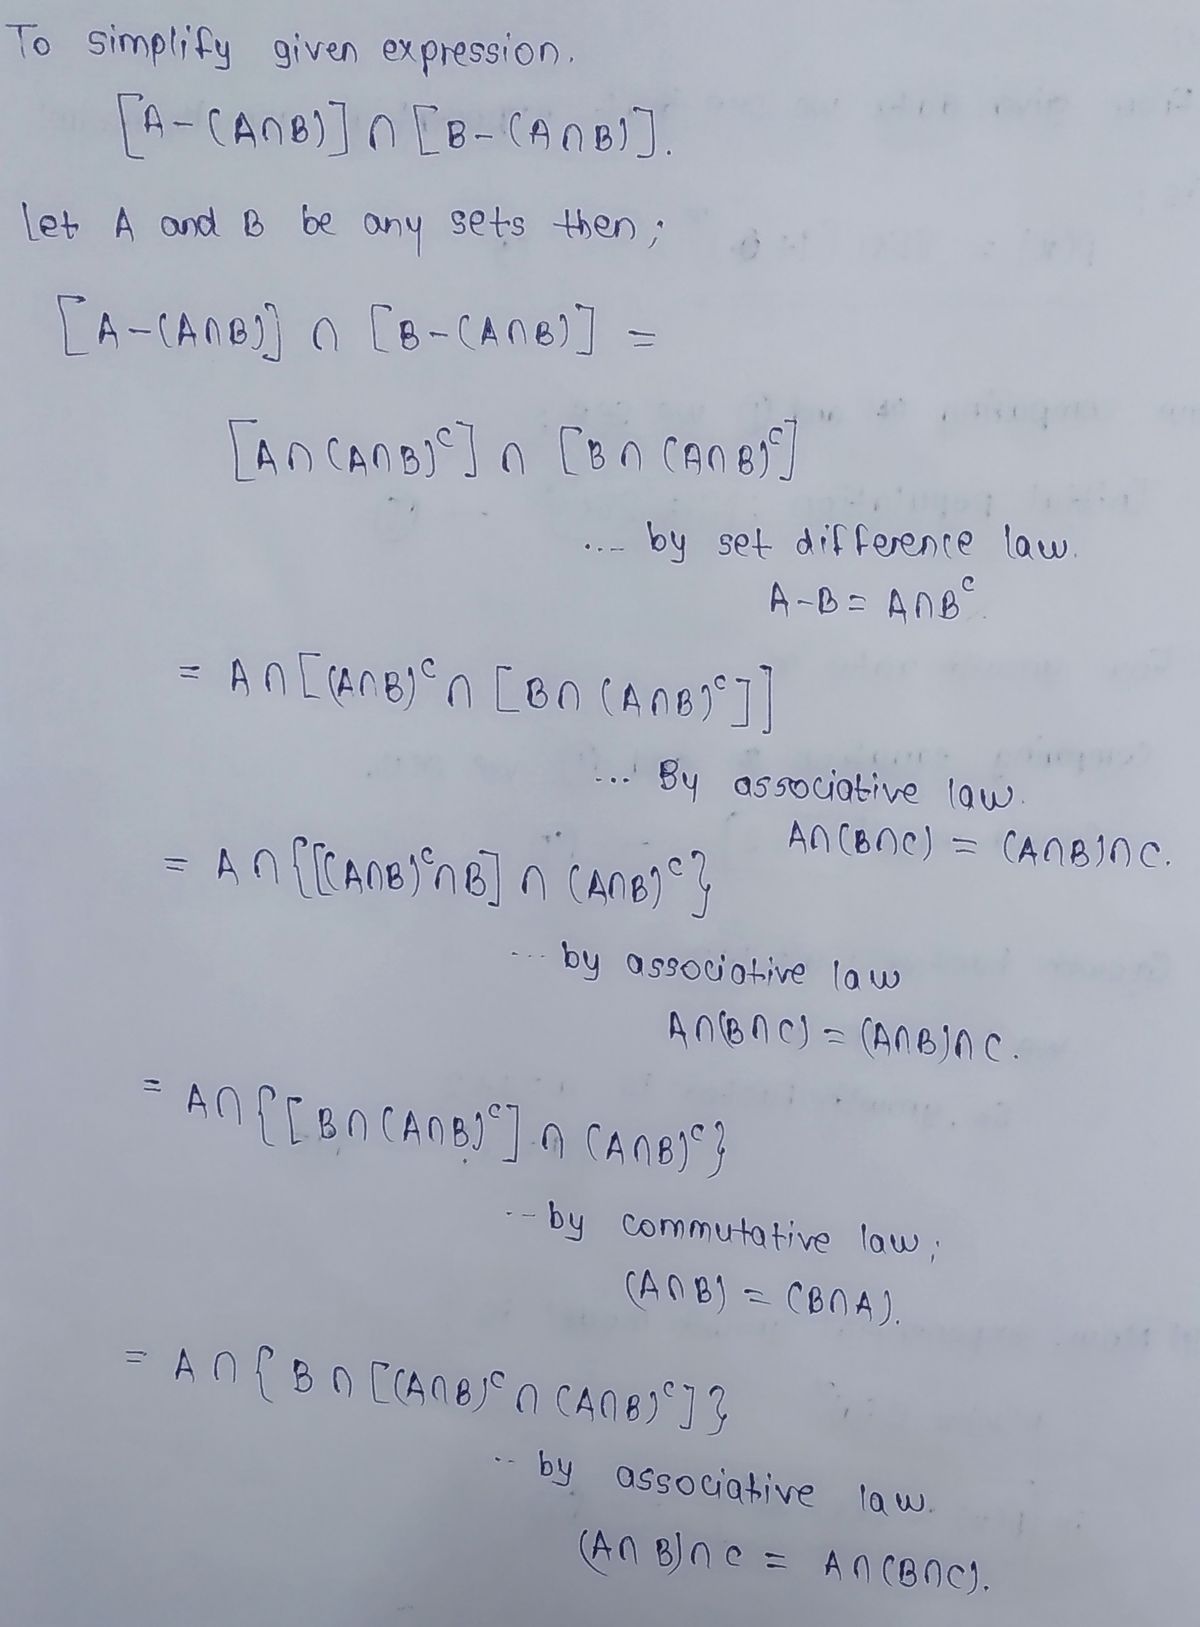 To simplify given expression.
[A-(A∩B)] ∩ [B-(A∩B)].
Let A and B be any sets then;
[A-(A∩B)] ∩ [B-(A∩B)] =
[A∩(A∩B)ᶜ] ∩ [B∩(A∩B)ᶜ]
... by set difference law.
A-B = A∩Bᶜ
= A∩[(A∩B)ᶜ∩[B∩(A∩B)ᶜ]]
... By associative law.
A∩(B∩C) = (A∩B)∩C.
= A∩{[(A∩B)ᶜ∩B] ∩ (A∩B)ᶜ}
... by associative law
A∩(B∩C) = (A∩B)∩C.
= A∩{[B∩(A∩B)ᶜ] ∩ (A∩B)ᶜ}
-- by commutative law;
(A∩B) = (B∩A).
= A∩{B∩[(A∩B)ᶜ∩(A∩B)ᶜ]}
.. by associative law.
(A∩B)∩C = A∩(B∩C).